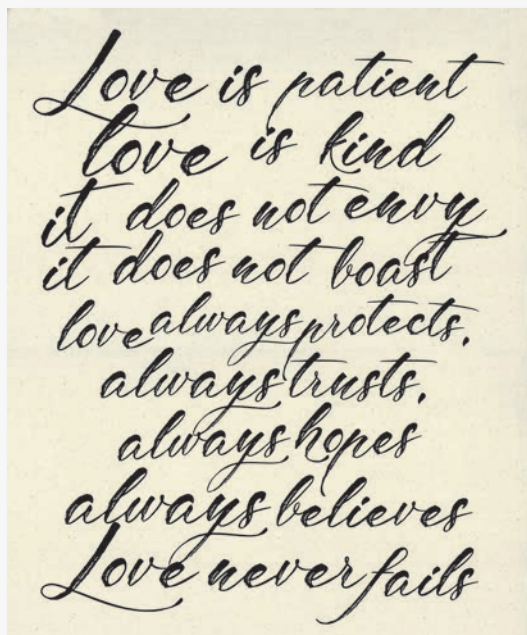 Love is patient
love is kind
it does not envy
it does not boast
love always protects,
always trusts,
always hopes
always believes
Love never fails